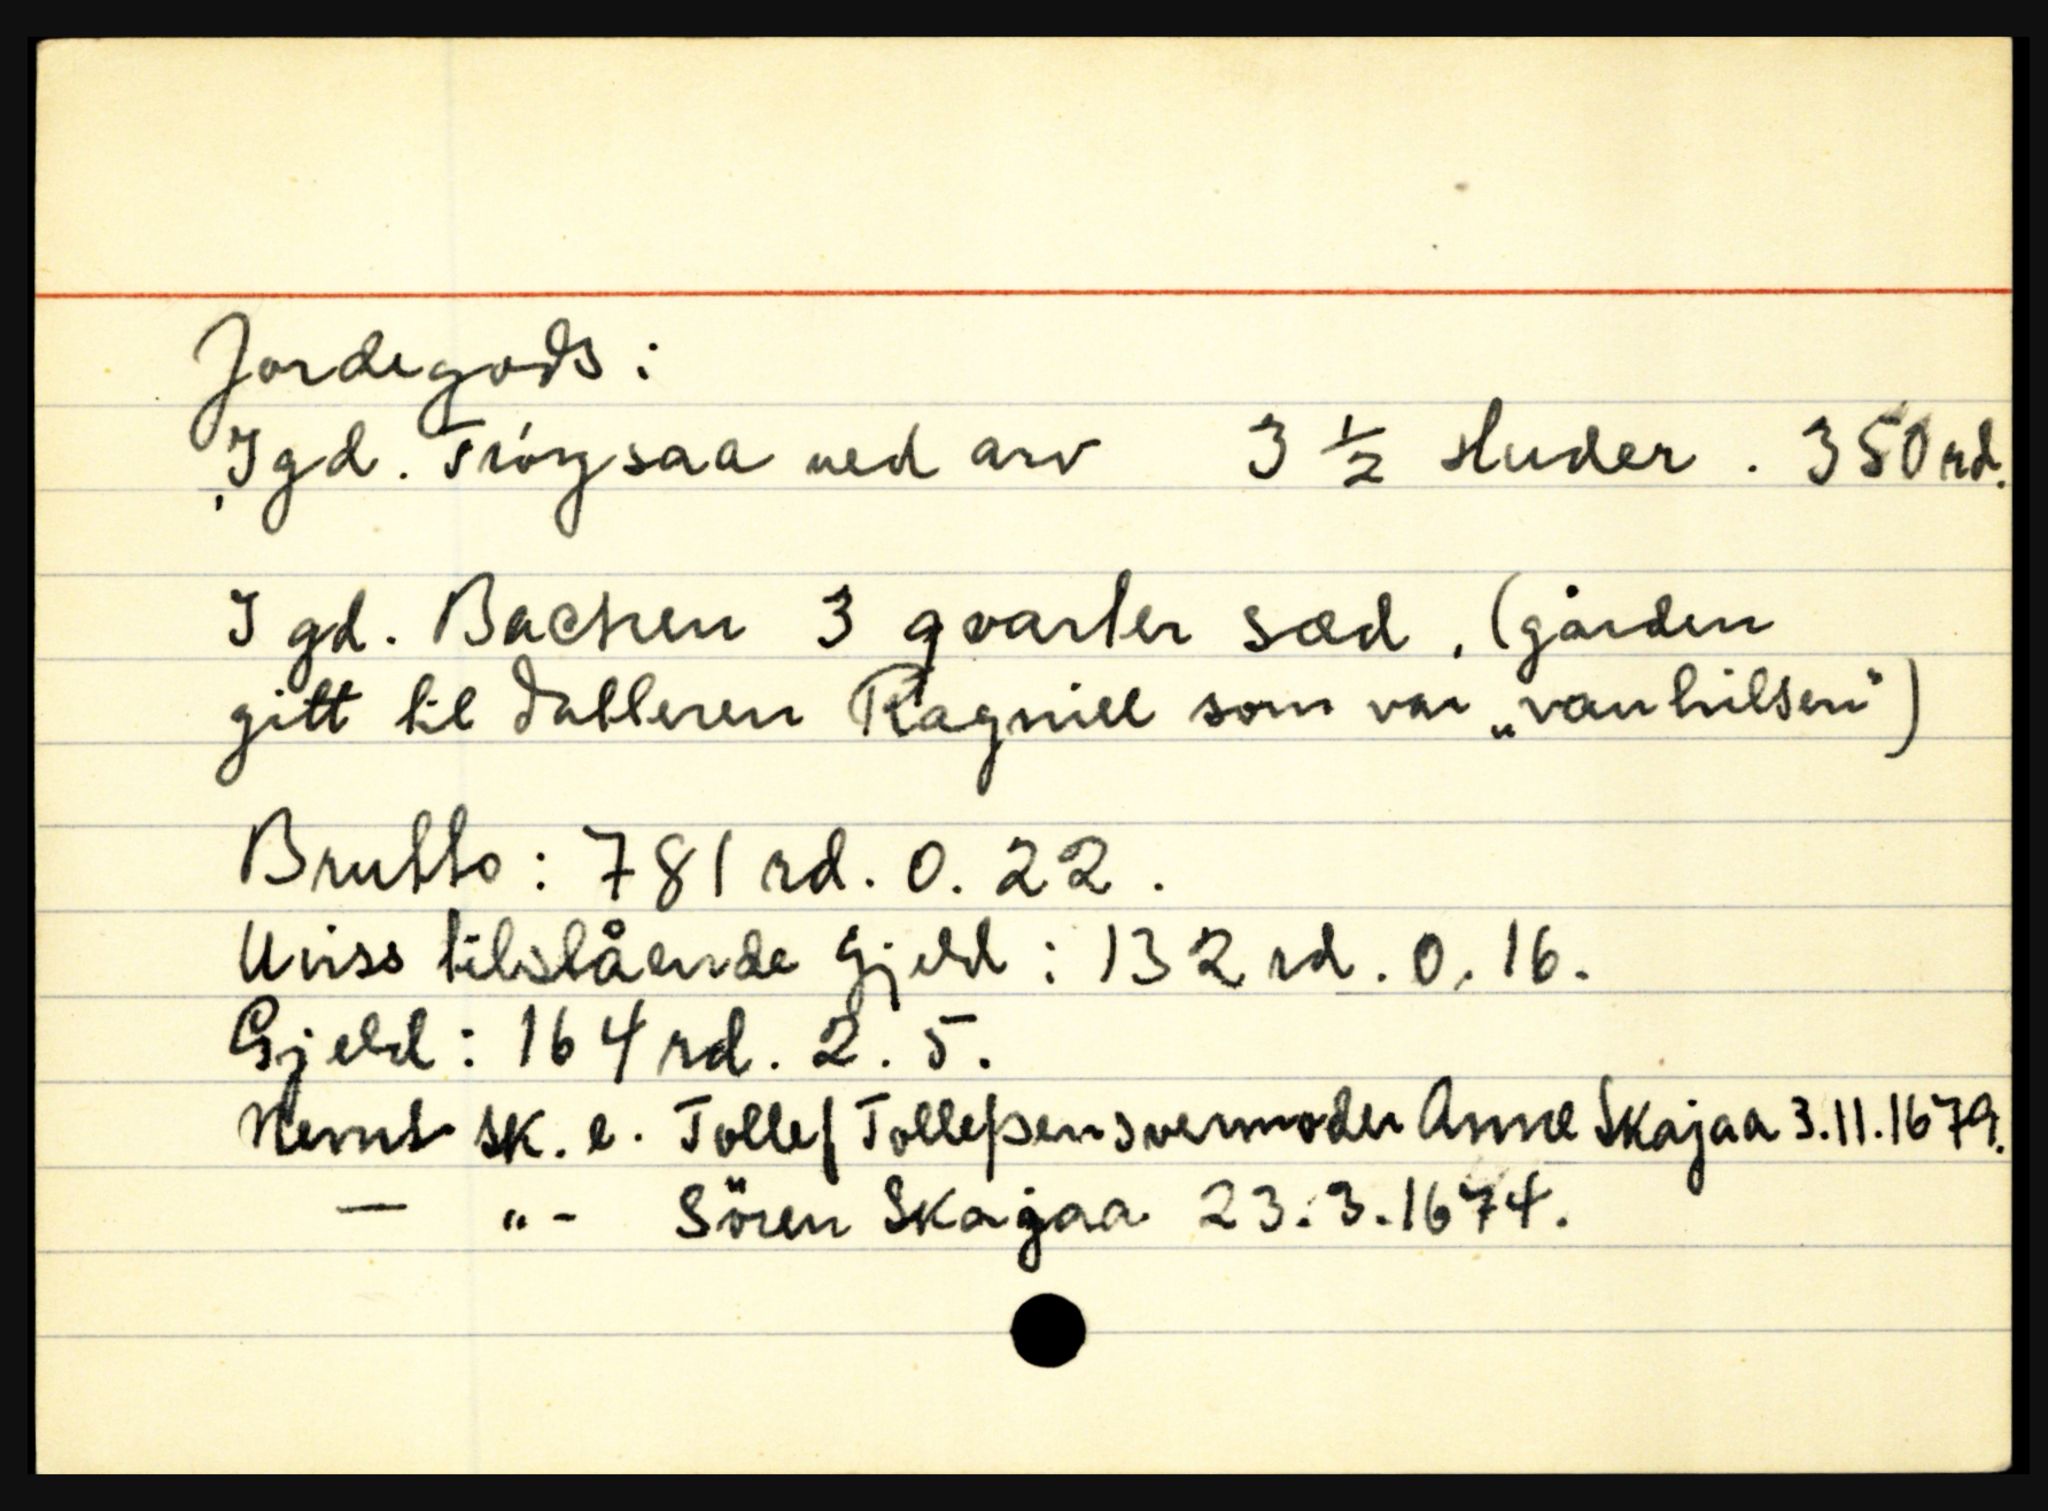 Jordegods:
I gd. Tröysaa ved arv 3 1/2 Huder. 350 rd.
I gd. Bachen 3 qvarter sæd. (gården
gitt til datteren Ragnill som var „vanhilsen")
Brutto: 781 rd. 0. 22.
Uviss tilstående gjeld: 132 rd. 0. 16.
Gjeld: 164 rd. 2. 5.
Nevnt sk. e. Tollef Tollefsen svermoder Anne Skajaa 3.11.1679.
— " - Sören Skajaa 23.3.1674.